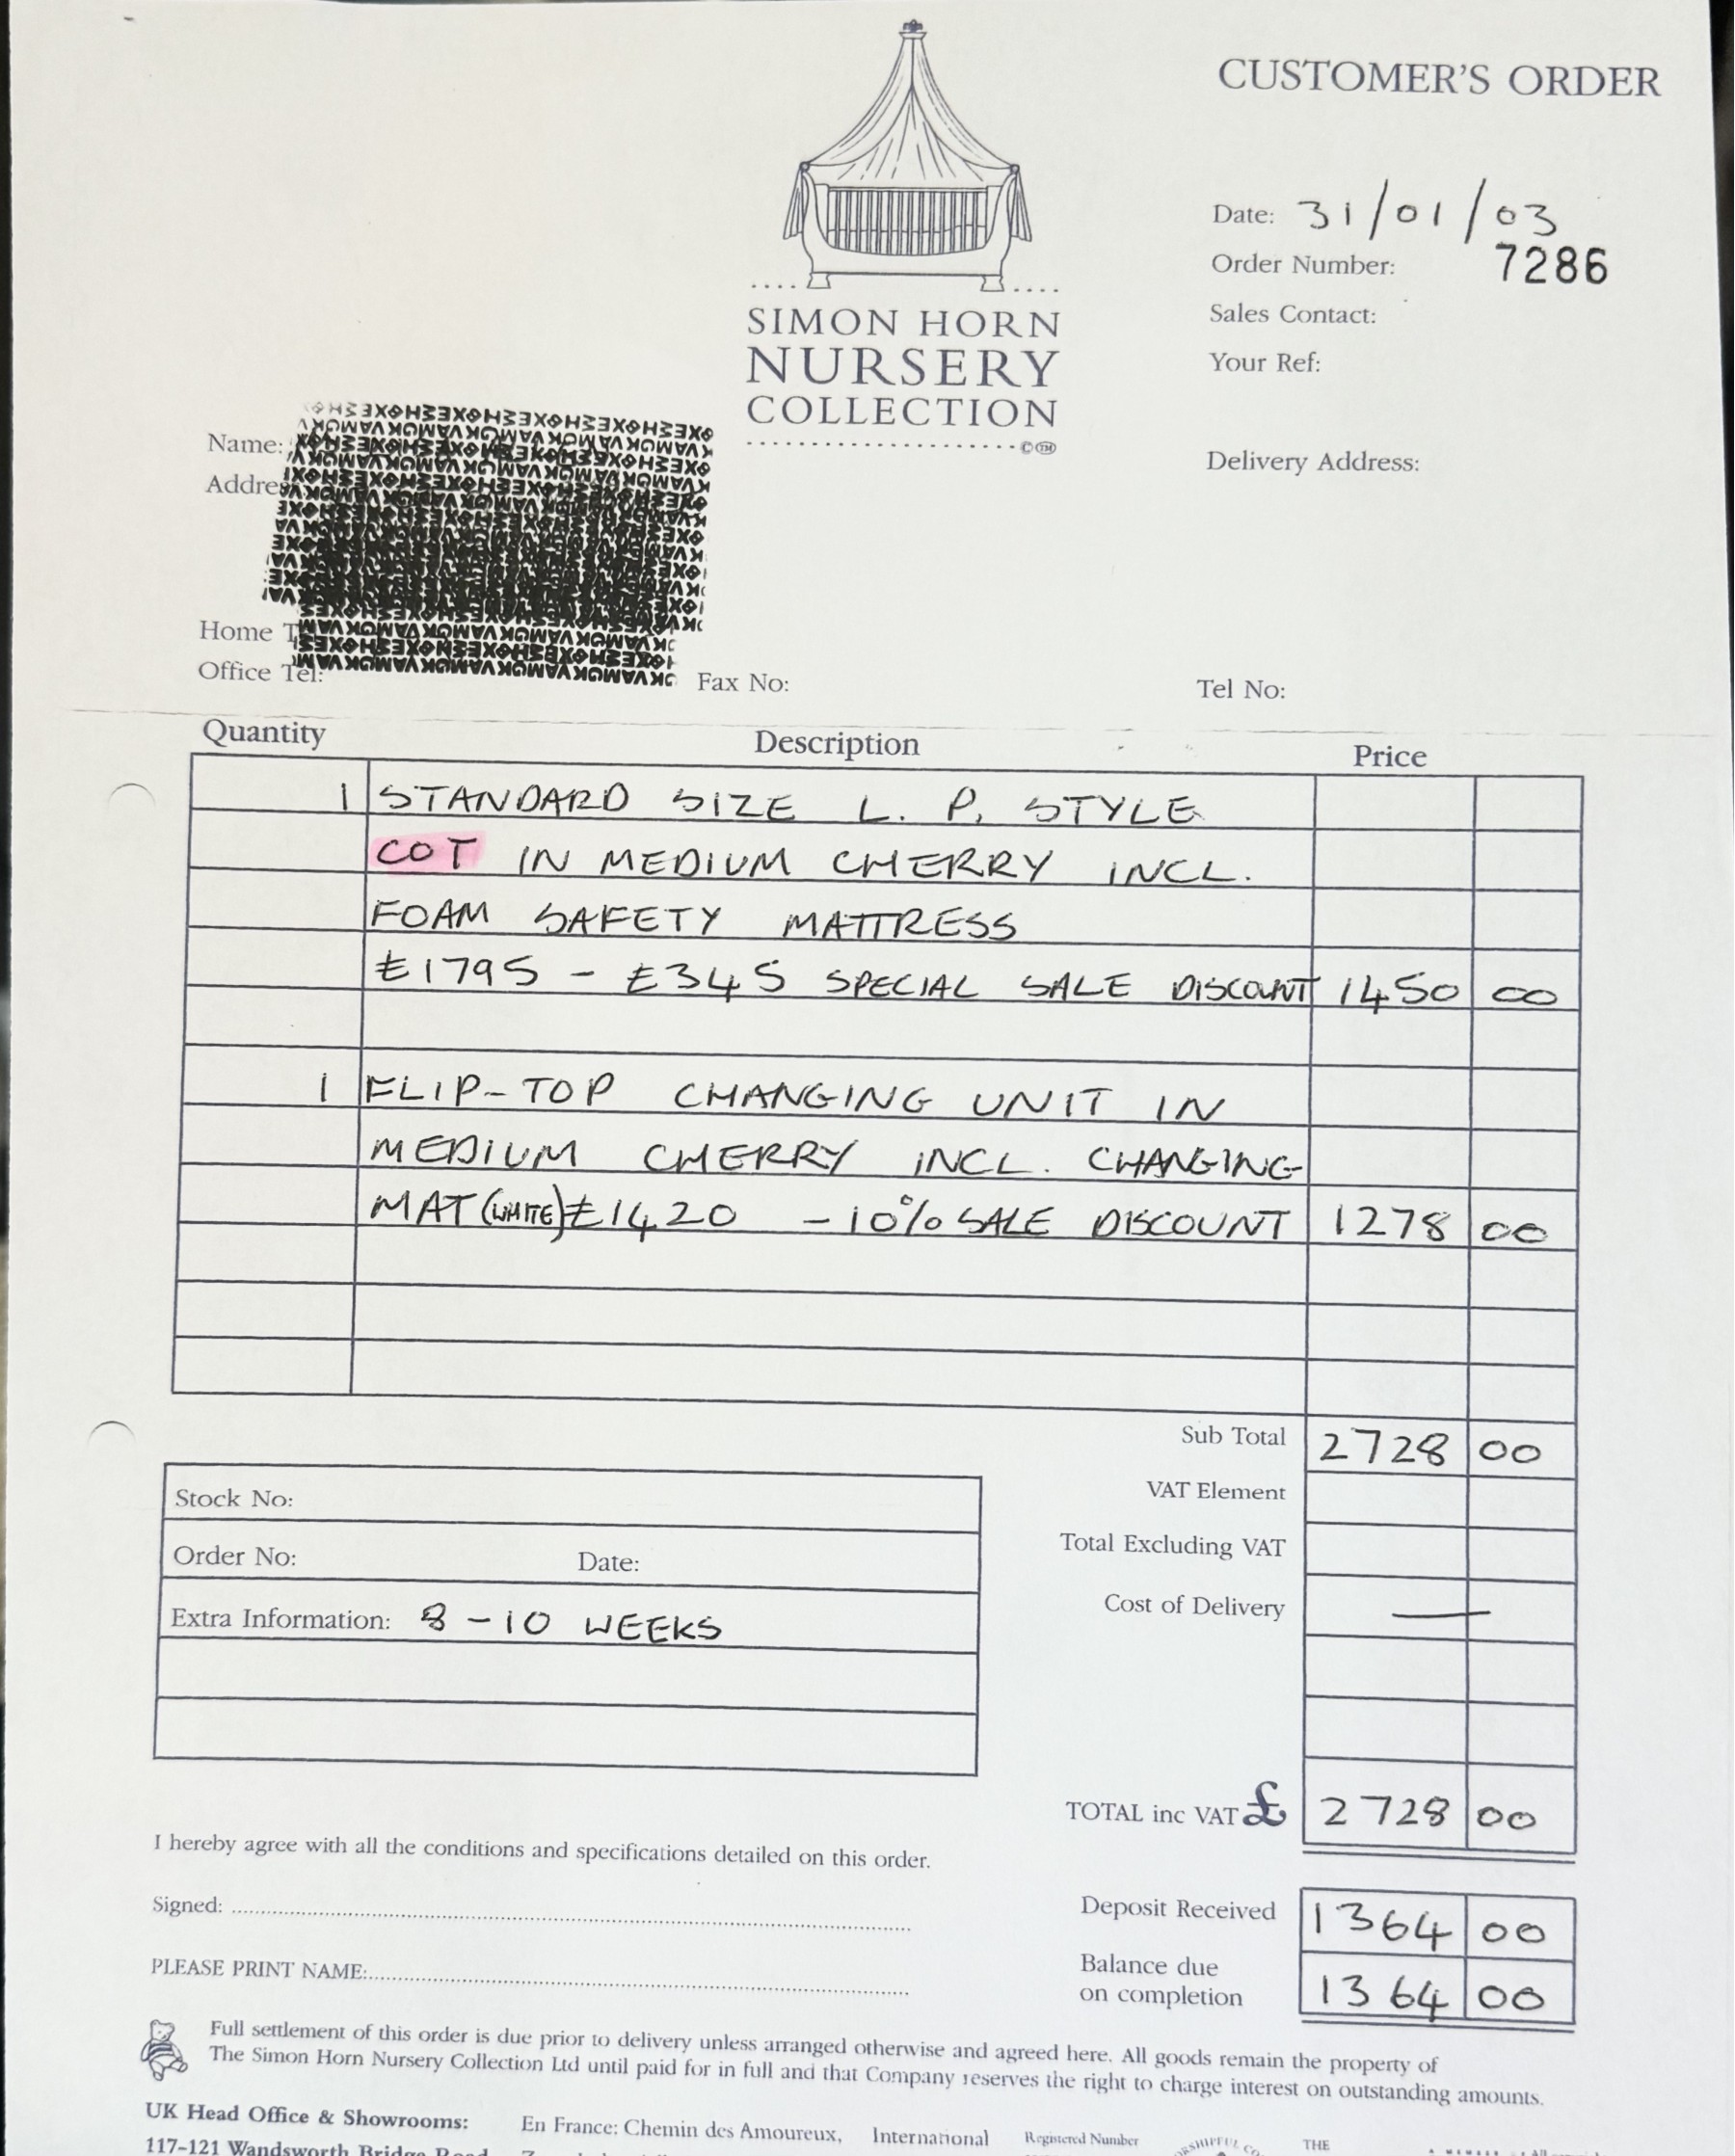 CUSTOMER'S ORDER
Date: 31/01/03
Order Number: 7286
Sales Contact:
Your Ref:
SIMON HORN
NURSERY
COLLECTION
©™
Name:
Delivery Address:
Home
Office Tel:
Fax No:
Tel No:
Quantity Description Price
1 STANDARD SIZE L. P. STYLE
COT IN MEDIUM CHERRY INCL.
FOAM SAFETY MATTRESS
£1795 - £345 SPECIAL SALE DISCOUNT 1450 00
1 FLIP-TOP CHANGING UNIT IN
MEDIUM CHERRY INCL. CHANGING
MAT (WHITE) £1420 - 10% SALE DISCOUNT 1278 00
Sub Total 2728 00
VAT Element
Total Excluding VAT
Cost of Delivery —
Stock No:
Order No: Date:
Extra Information: 8-10 WEEKS
TOTAL inc VAT £ 2728 00
I hereby agree with all the conditions and specifications detailed on this order.
Signed:
PLEASE PRINT NAME:
Deposit Received 1364 00
Balance due
on completion 1364 00
Full settlement of this order is due prior to delivery unless arranged otherwise and agreed here. All goods remain the property of
The Simon Horn Nursery Collection Ltd until paid for in full and that Company reserves the right to charge interest on outstanding amounts.
UK Head Office & Showrooms: En France: Chemin des Amoureux, International Registered Number THE
117-121 Wandsworth Bridge Road